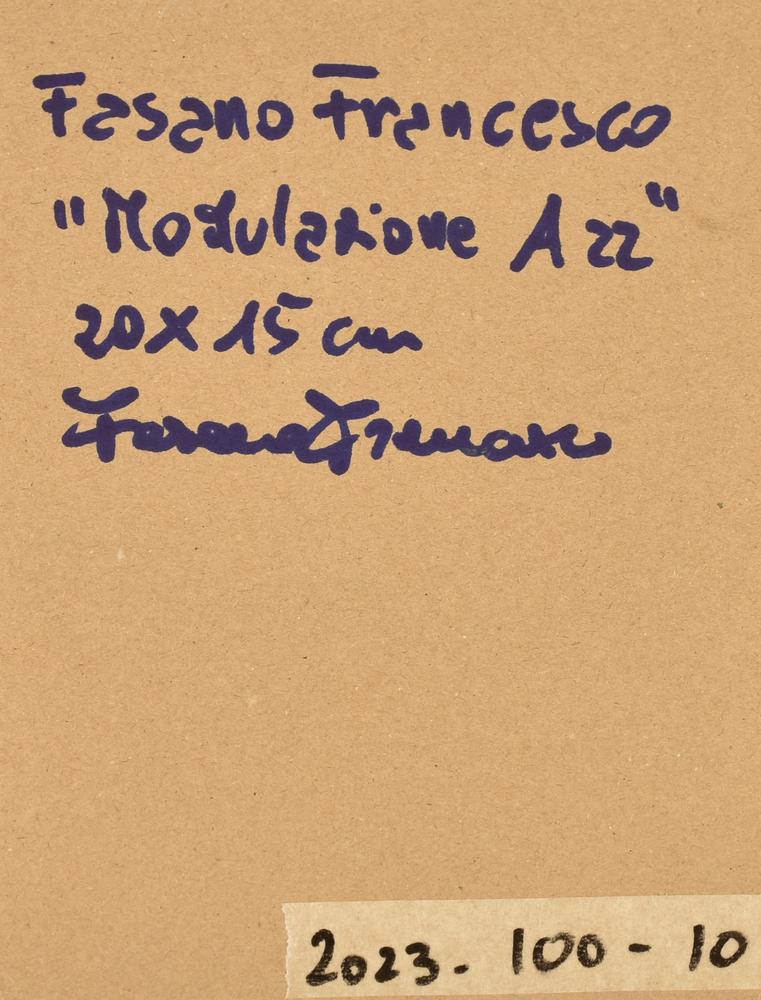 Fasano Francesco
"Modulazione A 22"
20 X 15 cm
Fasano Francesco
2023. 100 - 10